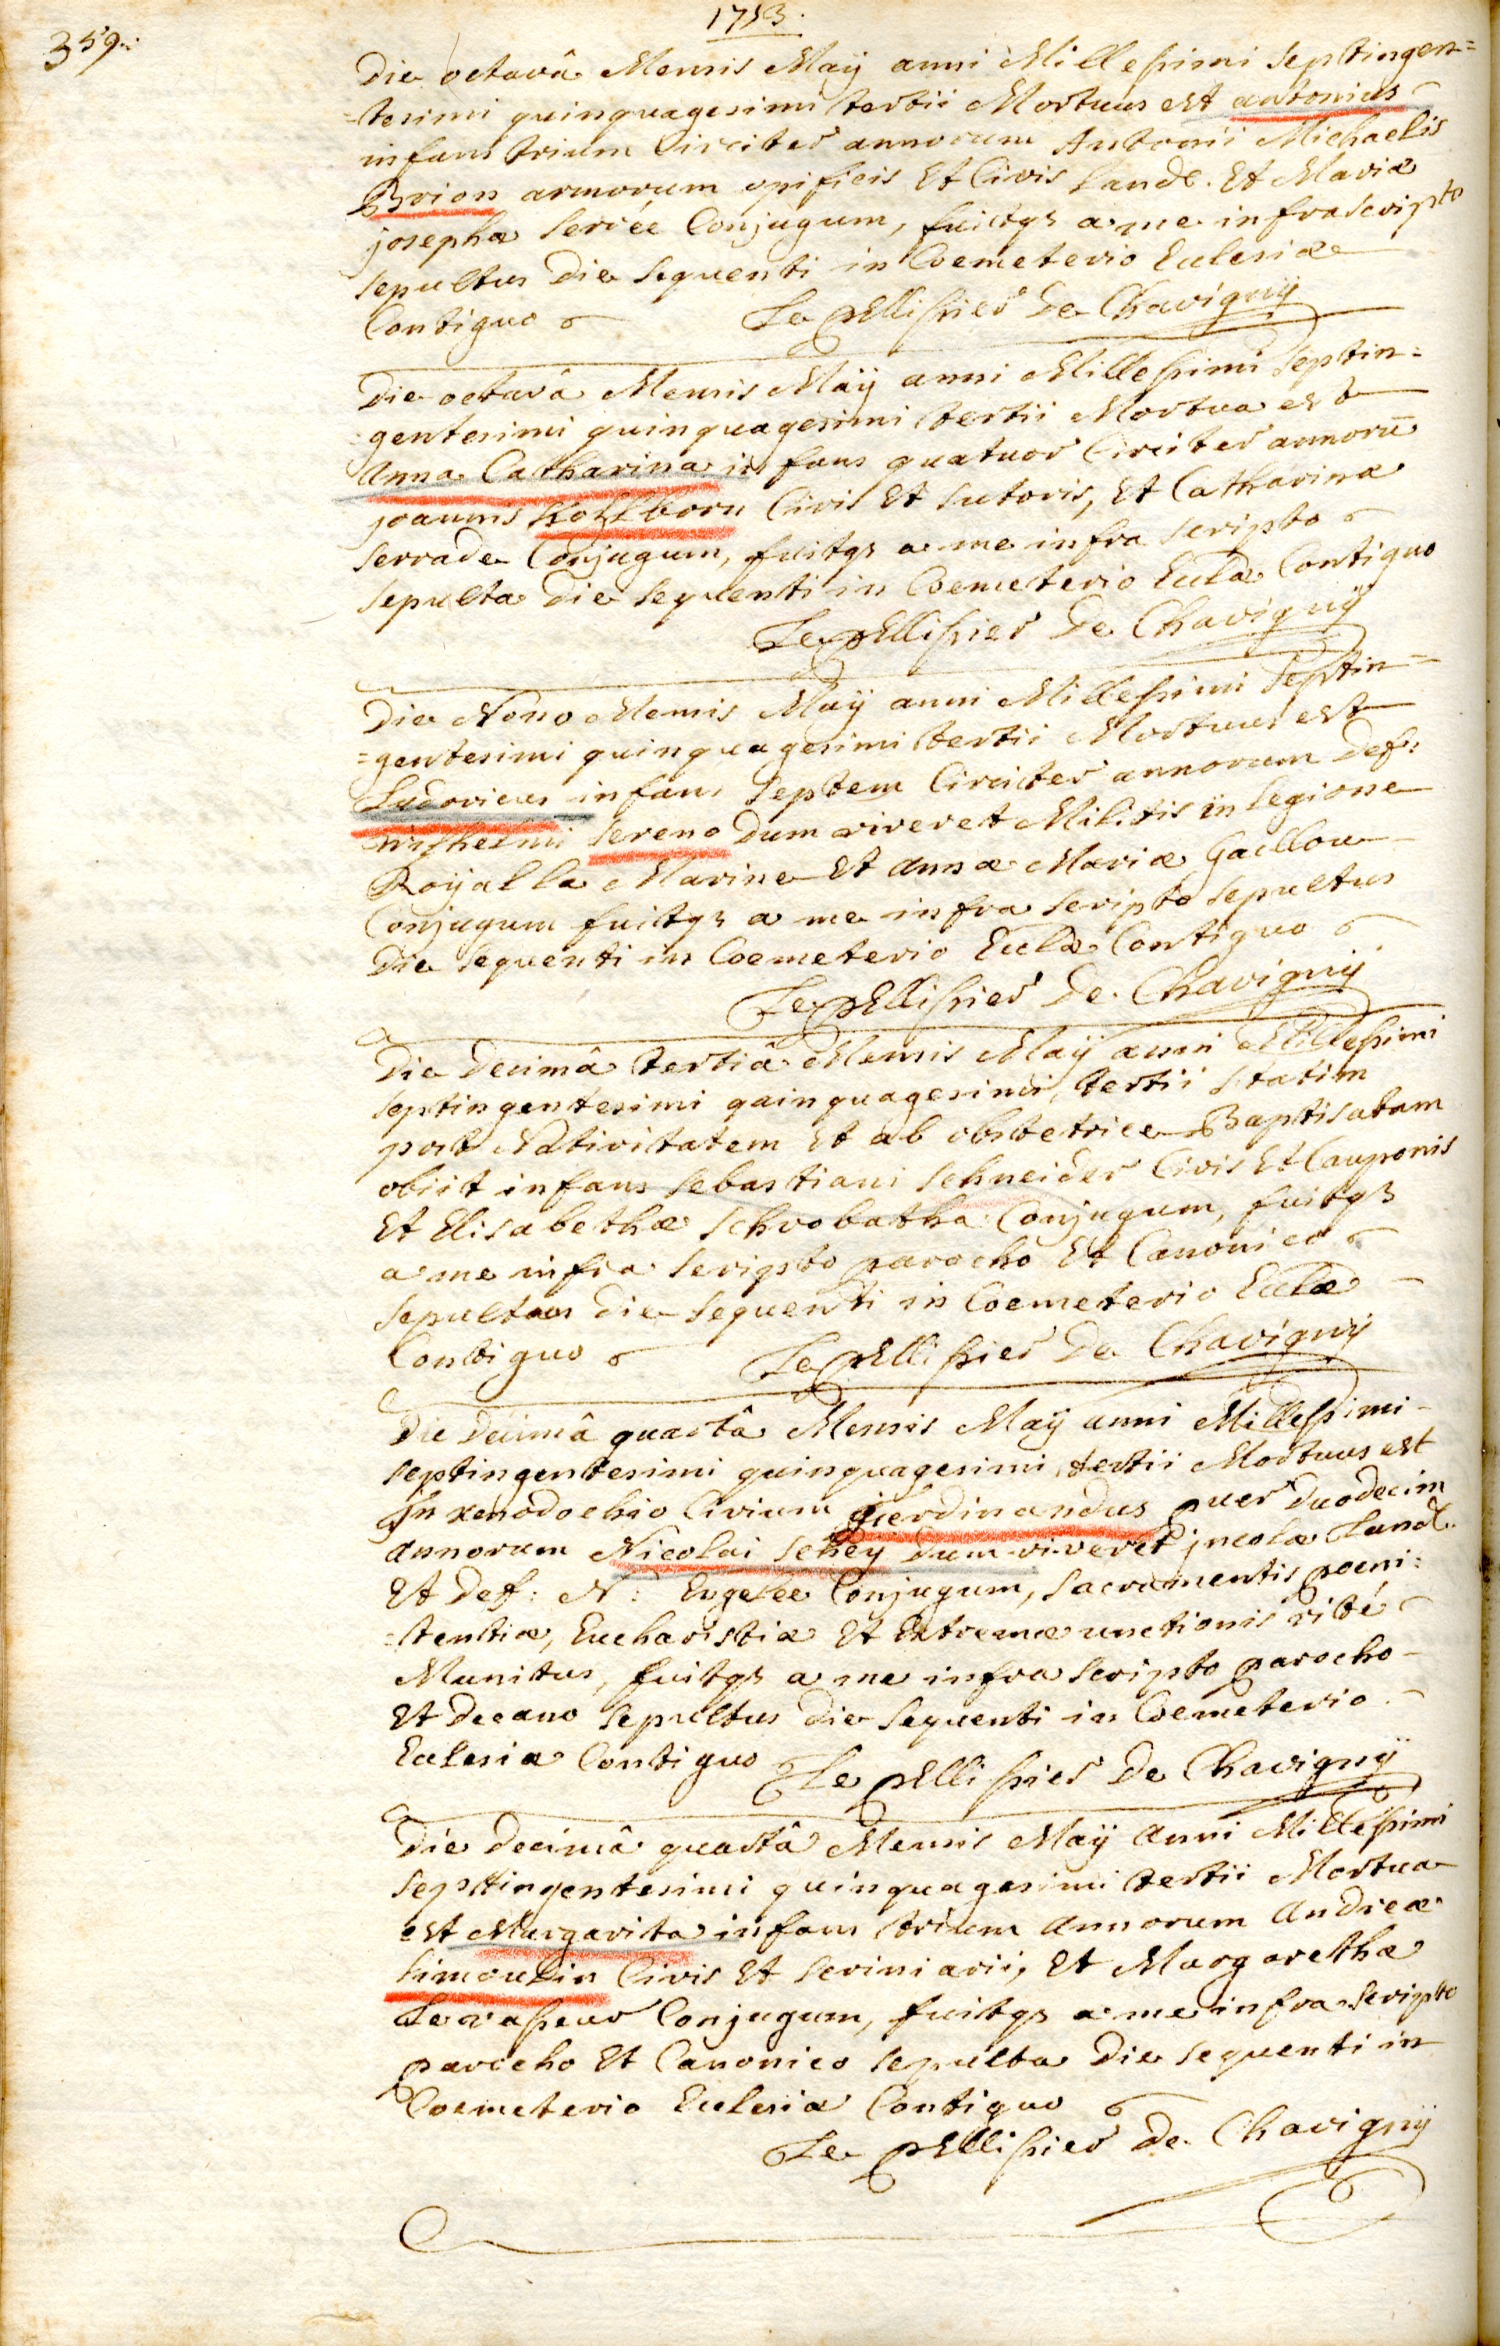 359.
1753.
Die octavâ Mensis Maÿ anni Millesimi septingen=
=tesimi quinquagesimi tertii Mortuus est antonius
infans trium Circiter annorum Antonii Michaelis
Brion armorum opificis Et Civis Land. Et Mariæ
josephæ Seriée Conjugum, fuitqs a me infrascripto
sepultus Die sequenti in Coemeterio Eclesiæ
Contiguo Le pEllissier De Chavignÿ
Die octavâ Mensis Maÿ anni Millesimi septin=
=gentesimi quinquagesimi tertii Mortua est
Anna Catharina infans quatuor Circiter annorū
joannis Civis Et sutoris, Et Catharinæ
serrade Conjugum, fuitqs a me infra scripto
sepulta Die sequenti in Coemeterio Eclæ Contiguo
Le pEllissier De Chavignÿ
Die Nono Mensis Maÿ anni Millesimi septin=
=gentesimi quinquagesimi tertii Mortuus est
Ludovicus infans septem Circiter annorum Def:
wilhelmi sereno Dum viveret Militis in Legione
Roÿal la Marine Et Annæ Mariæ Gaellou
Conjugum fuitqs a me infra scripto sepultus
Die sequenti in Coemeterio Eclæ Contiguo
Le pEllissier De Chavignÿ
Die Decimâ tertiâ Mensis Maÿ anni Millesimi
septingentesimi quinquagesimi tertii statim
post Nativitatem Et ab obstetrice Baptisatam
obiit infans sebastiani schneider Civis Et Cauponis
Et Elisabethæ schrobatha Conjugum, fuitqs
a me infra scripto parocho Et Canonico
sepultus Die sequenti in Coemeterio Eclæ
Contiguo Le pEllissier De Chavignÿ
Die Decimâ quartâ Mensis Maÿ anni Millesimi
septingentesimi quinquagesimi tertii Mortuus est
In xenodochio Civium ferdinandus puer Duodecim
Annorum Nicolai schey dum viveret jncolæ Land.
Et Def: N: Engelée Conjugum, sacramentis poeni=
=tentiæ, Eucharistiæ Et Extremæ unctionis rité
Munitus, fuitqs a me infra scripto parocho
Et Decano sepultus Die sequenti in Coemeterio
Eclesiæ Contiguo Le pEllissier De Chavignÿ
Die Decimâ quartâ Mensis Maÿ Anni Millesimi
septingentesimi quinquagesimi tertii Mortua
est Margarita infans trium Annorum Andreæ
simoulin Civis Et scriniarii, Et Margarethæ
Levasseur Conjugum, fuitqs a me infra scripto
parocho Et Canonico sepulta Die sequenti in
Coemeterio Eclesiæ Contiguo
Le pEllissier De Chavignÿ